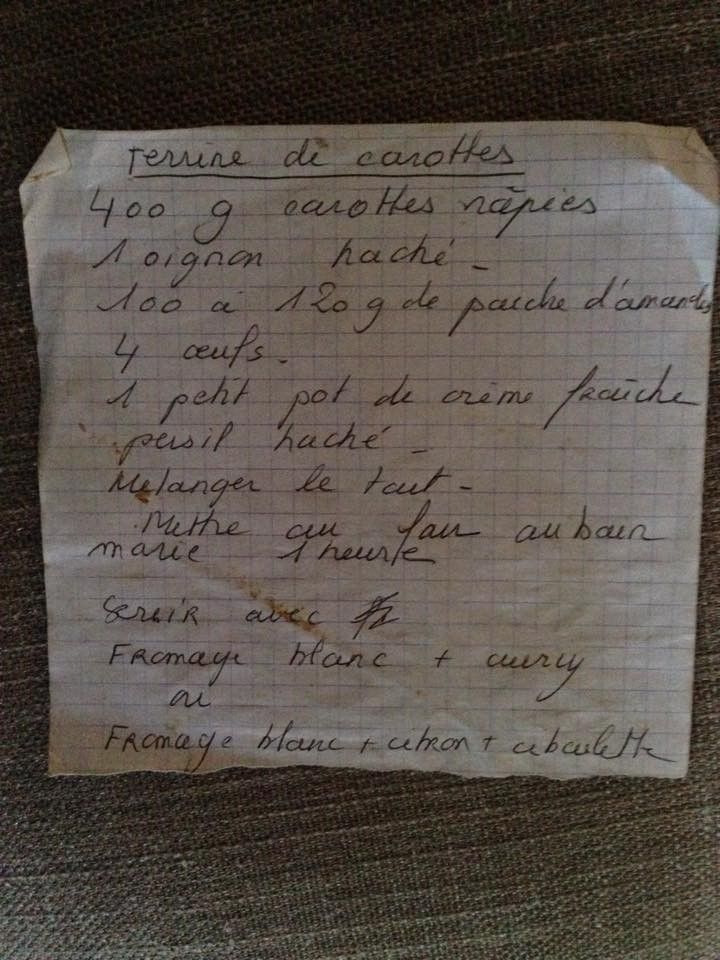 Terrine de carottes
400 g carottes râpées
1 oignon haché -
100 à 120 g de poudre d'amandes
4 œufs -
1 petit pot de crème fraîche
persil haché -
Mélanger le tout -
Mettre au four au bain
marie 1 heure
Servir avec
Fromage blanc + curry
ou
Fromage blanc + citron + ciboulette